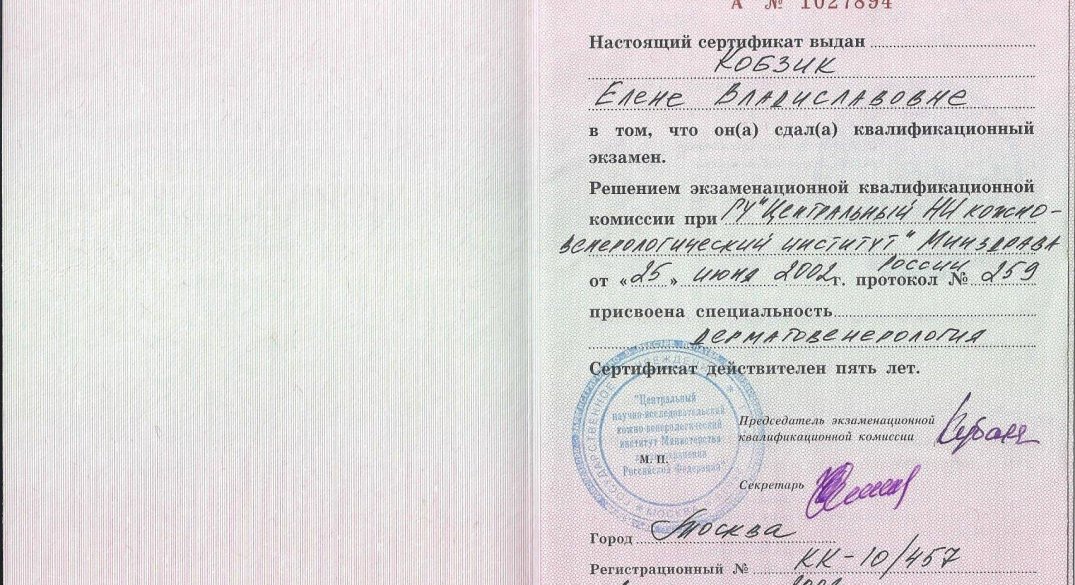 А № 1027894
Настоящий сертификат выдан
Кобзик
Елене Владиславовне
в том, что он(а) сдал(а) квалификационный
экзамен.
Решением экзаменационной квалификационной
комиссии при ГУ "Центральный НИ кожно-
венерологический институт" Минздрава
России
от «25» июня 2002 г. протокол № 259
присвоена специальность
дерматовенерология
Сертификат действителен пять лет.
"Центральный
научно-исследовательский
кожно-венерологический
институт Министерства
здравоохранения
Российской Федерации"
М. П.
Председатель экзаменационной
квалификационной комиссии
Секретарь
Город Москва
Регистрационный № КК-10/457
2002